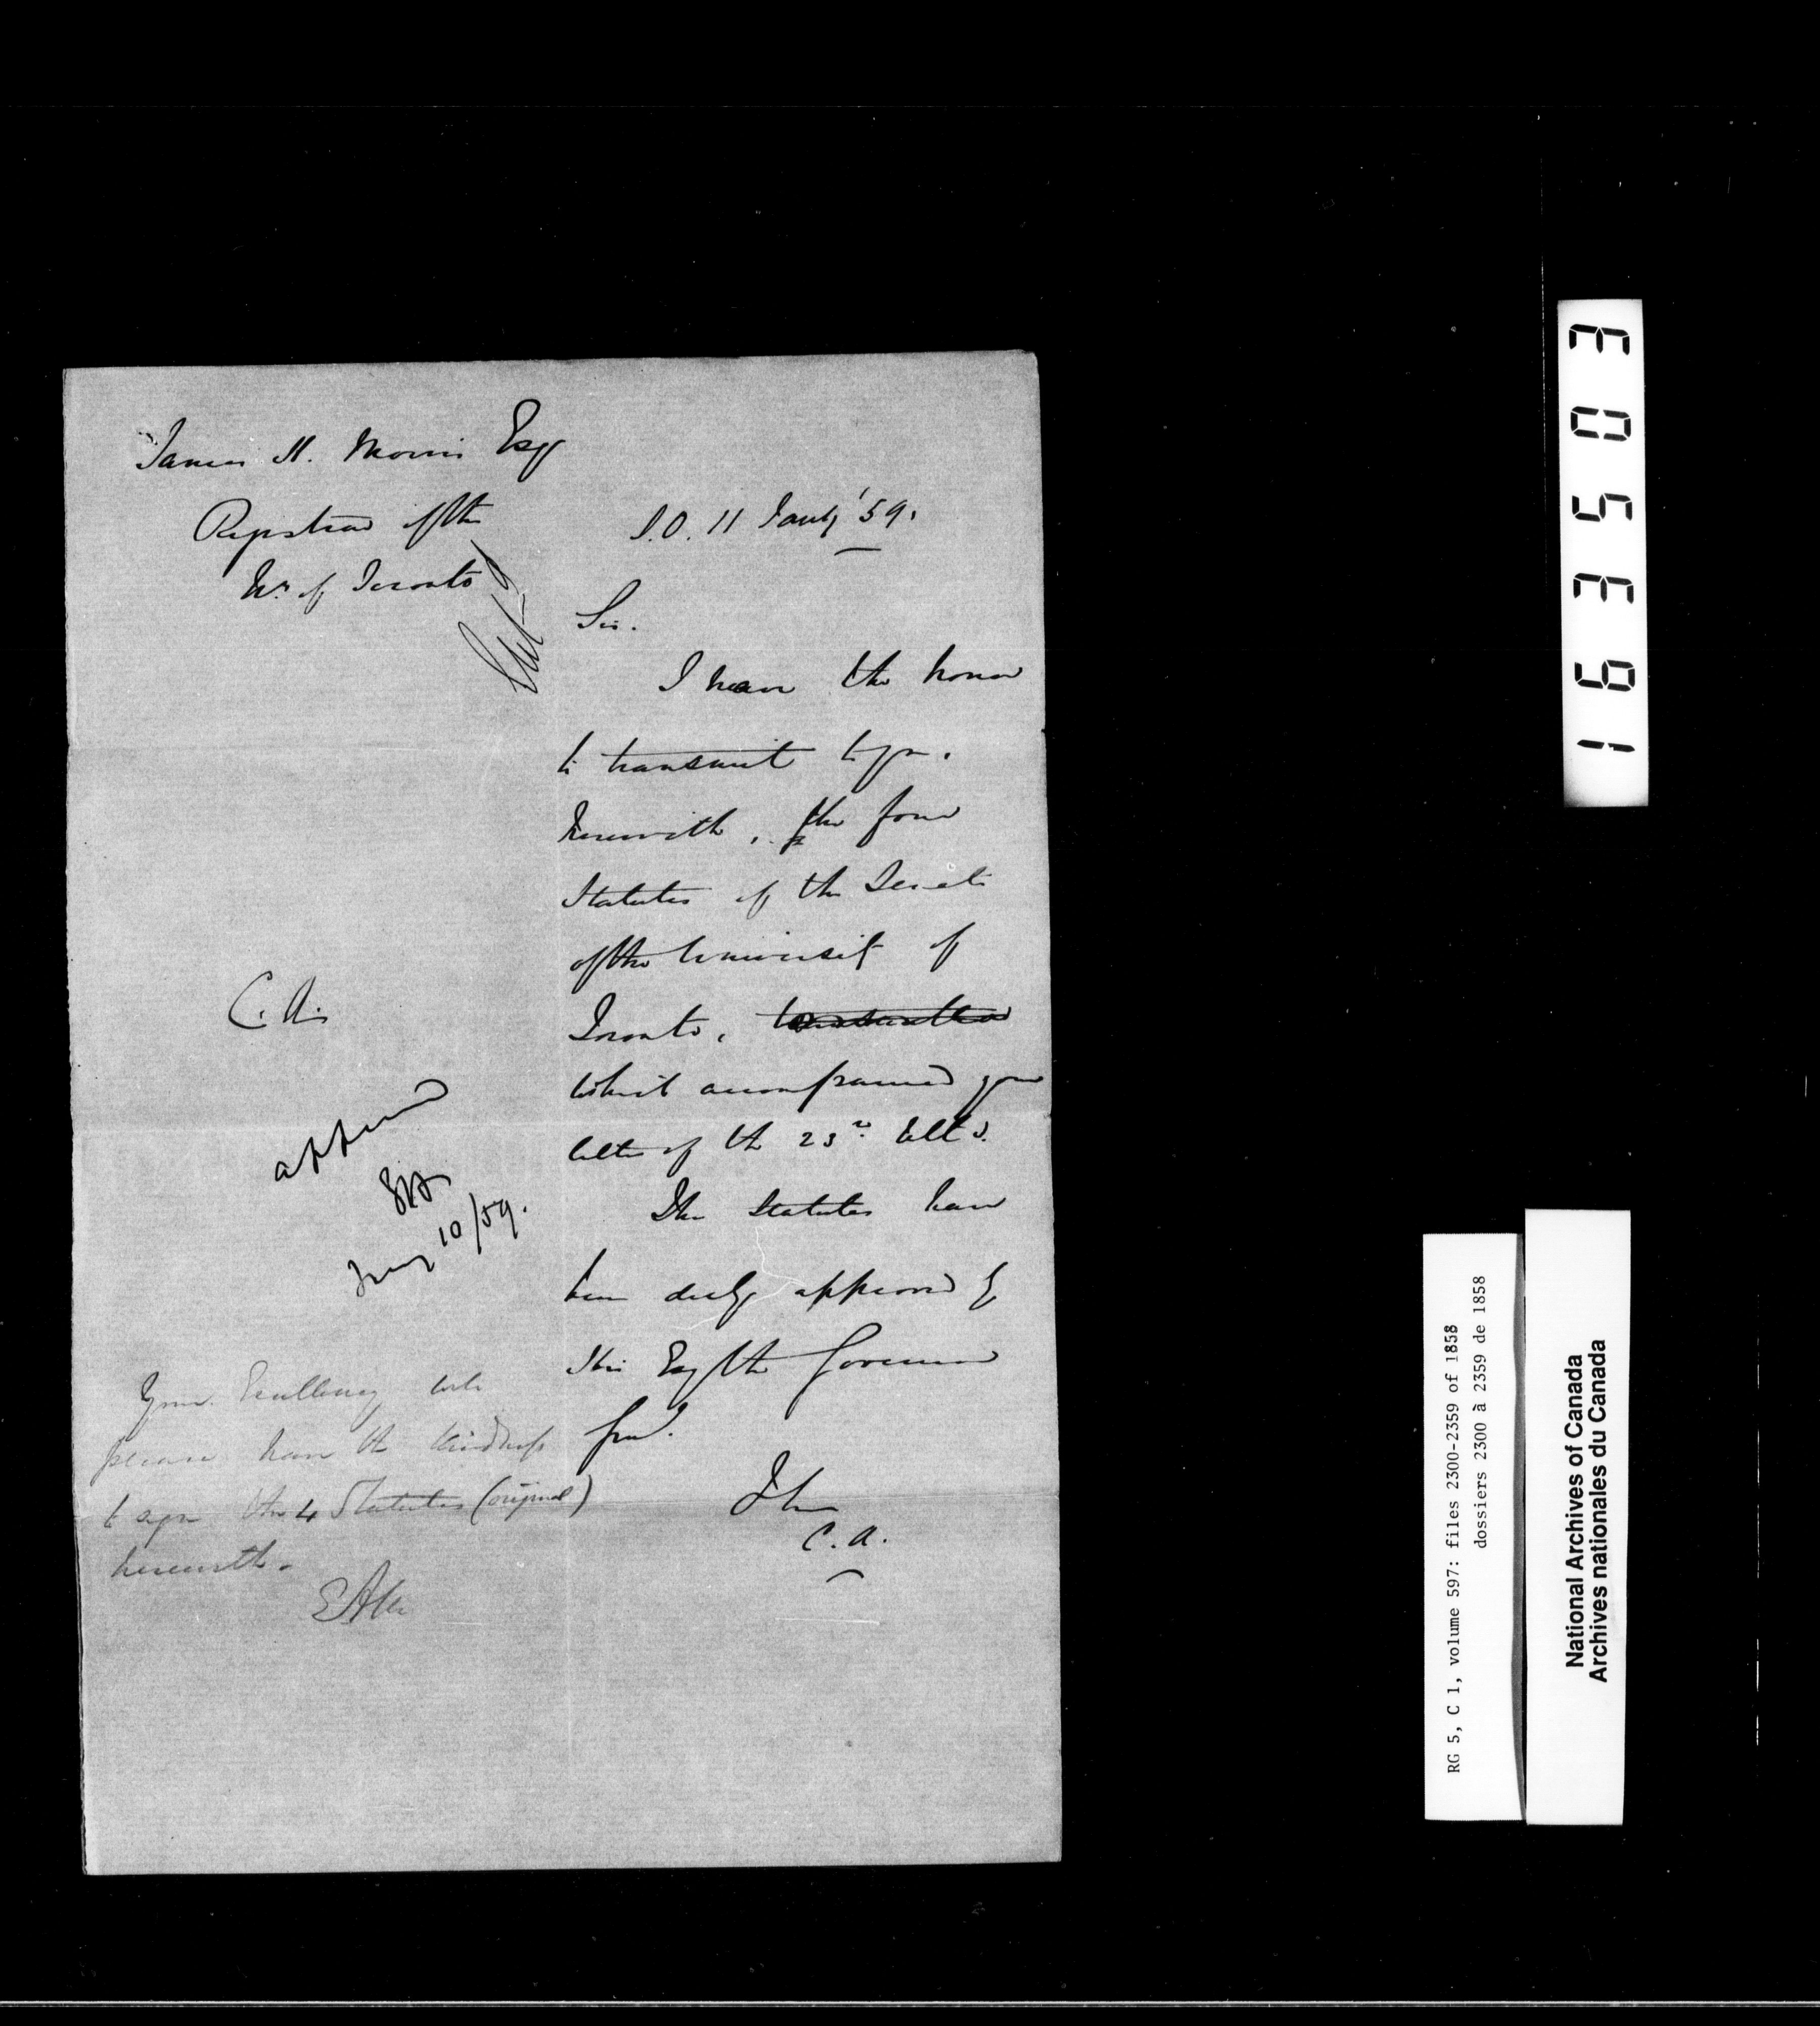 James H. Morris Esq
Registrar of the
Uy. of Toronto
S.O. 11 Jany '59.
Sir.
I have the honor
to transmit to you.
herewith, the four
Statutes of the Senate
of the University of
Toronto,
which accompanied your
letter of the 23rd Ulto.
The Statutes have
been duly approved by
His Exy the Governor
Genl.
I h
C. A.
approved
Jany 10/59.
Your Excellency will
please have the kindness
to sign the 4 Statutes (original)
herewith.
163503
RG 5, C 1, volume 597: files 2300-2359 of 1858
dossiers 2300 à 2359 de 1858
National Archives of Canada
Archives nationales du Canada